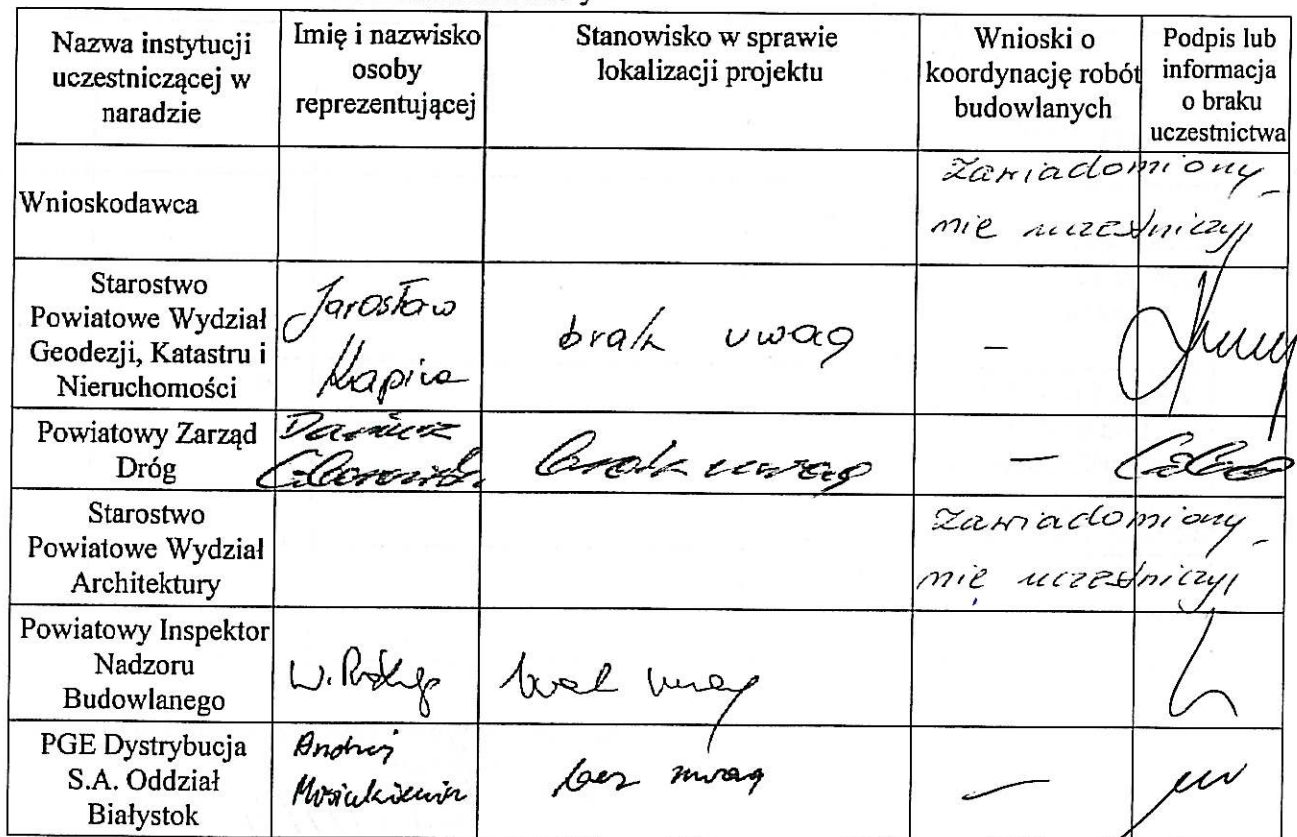 Nazwa instytucji uczestniczącej w naradzie
Imię i nazwisko osoby reprezentującej
Stanowisko w sprawie lokalizacji projektu
Wnioski o koordynację robót budowlanych
Podpis lub informacja o braku uczestnictwa
Wnioskodawca
zawiadomiony
nie uczestniczył
Starostwo
Powiatowe Wydział
Geodezji, Katastru i
Nieruchomości
Jarosław
Kapica
brak uwag
–
Powiatowy Zarząd
Dróg
Dariusz
brak uwag
–
Starostwo
Powiatowe Wydział
Architektury
zawiadomiony
nie uczestniczył
Powiatowy Inspektor
Nadzoru
Budowlanego
W.
brak uwag
PGE Dystrybucja
S.A. Oddział
Białystok
Andrzej
bez uwag
–